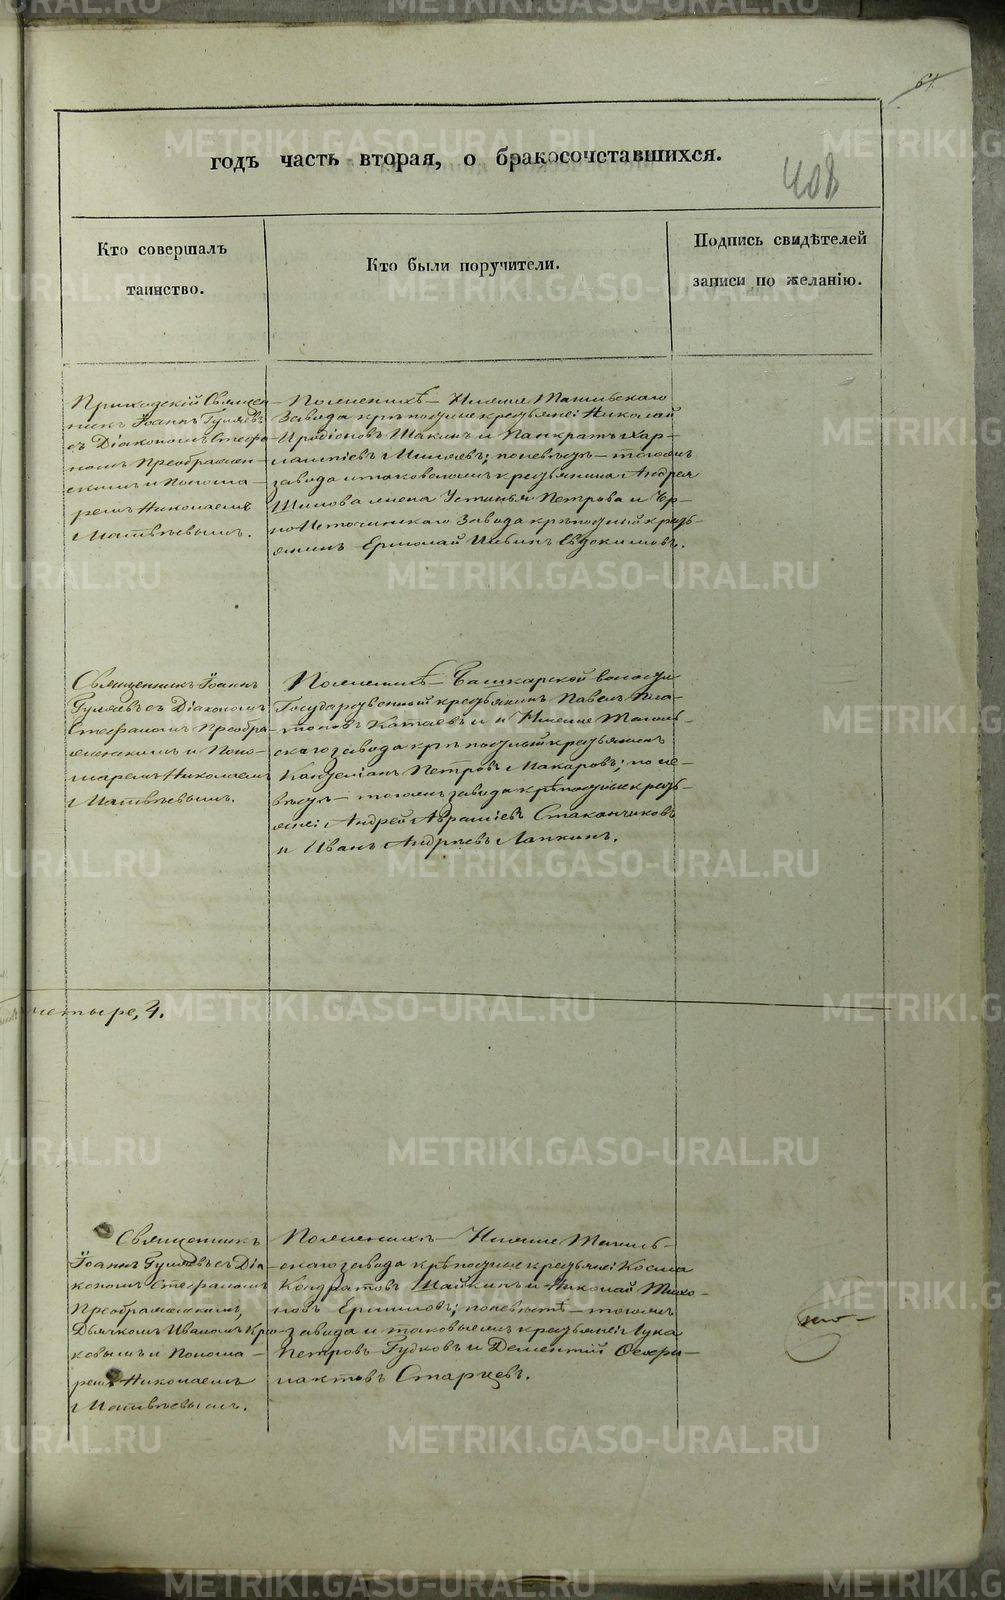 61
годъ часть вторая, о бракосочетавшихся.
408
Кто совершалъ
таинство.
Кто были поручители.
Подпись свидѣтелей
записи по желанію.
Приходскій Священ-
никъ Іоаннъ Гуляевъ
съ Діакономъ Стефа-
номъ Преображен-
скимъ и Понома-
ремъ Николаемъ
Матвѣевымъ.
По женихѣ – Нижне Тагильскаго
Завода крѣпостные крестьяне: Николай
Иродіоновъ Шакинъ и Панкратъ Хар-
лампіевъ; по невѣстѣ – тогожъ
завода и таковогожъ крестьянина Андрея
Шилова жена Устинья Петрова и Чер-
ноИсточинскаго Завода крѣпостный кресть-
янинъ Ермолай Евдокимовъ.
Священникъ Іоаннъ
Гуляевъ съ Діакономъ
Стефаномъ Преобра-
женскимъ и Поно-
маремъ Николаемъ
Матвѣевымъ.
По женихѣ – Башкарской волости
Государственный крестьянинъ Павелъ Пла-
тоновъ Катаевъ и Нижне Тагиль-
скаго завода крѣпостный крестьянинъ
Петровъ Макаровъ; по не-
вѣстѣ – тогожъ завода крѣпостные кресть-
яне: Андрей Авраміевъ Стаканчиковъ
и Иванъ Андреевъ Лапкинъ.
четыре, 4.
Священникъ
Іоаннъ Гуляевъ съ Діа-
кономъ Стефаномъ
Преображенскимъ,
Дьячкомъ Иваномъ
и Понома-
ремъ Николаемъ
Матвѣевымъ.
По женихѣ – Нижне Тагиль-
скаго завода крѣпостные крестьяне: Косма
Кондратовъ Шайкинъ и Николай Тихо-
новъ Ершиловъ; по невѣстѣ – тогожъ
завода и таковыежъ крестьяне: Лука
Петровъ Гудковъ и Дементій Феофи-
лактовъ Старцевъ.
METRIKI.GASO-URAL.RU